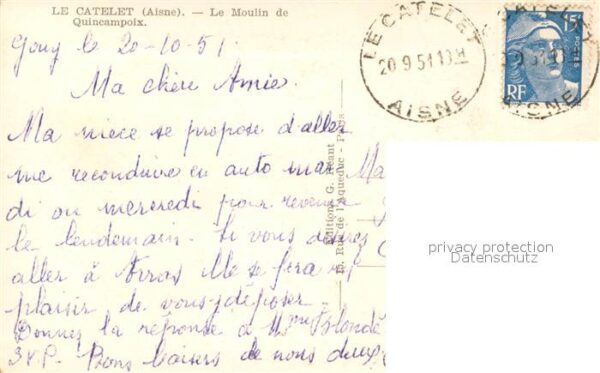 LE CATELET (Aisne). — Le Moulin de
Quincampoix.
Gouy le 20-10-51.
Ma chère Amie.
Ma nièce se propose d'aller
me reconduire en auto mar Ma
di ou mercredi pour reveni
le lendemain. Si vous désirez
aller à Arras Elle se fera
plaisir de vous déposer
Donnez la réponse à Mme Blondé
S.V.P. Bons baisers de nous deux
Editions G. Réant
Rue de l'Aqueduc - Paris
LE CATELET
20.9 51 19H
AISNE
15F
POSTES
RF
CATELET
9 51
AISNE
privacy protection
Datenschutz